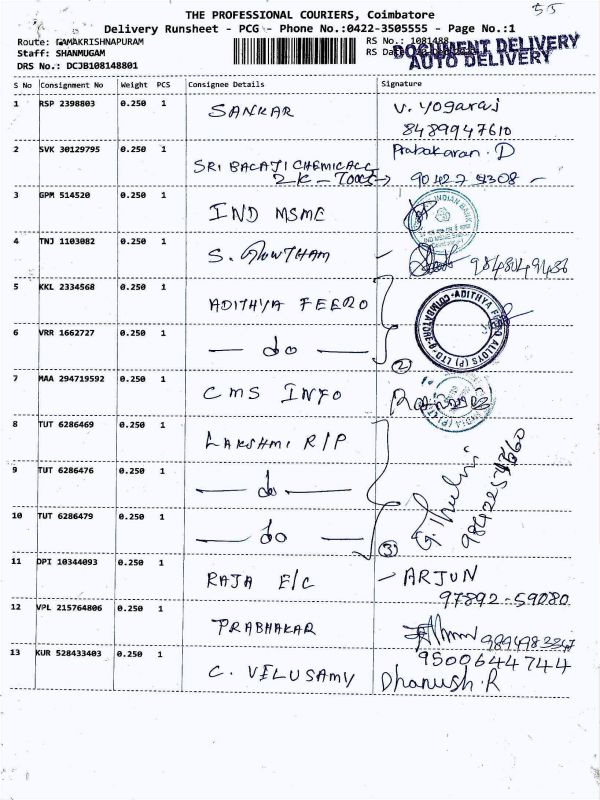 55
THE PROFESSIONAL COURIERS, Coimbatore
Delivery Runsheet - PCG - Phone No.:0422-3505555 - Page No.:1
Route: RAMAKRISHNAPURAM
RS No.: 1081488
Staff: SHANMUGAM
RS Date
DOCUMENT DELIVERY
AUTO DELIVERY
DRS No.: DCJB108148801
S No Consignment No Weight PCS Consignee Details Signature
1 RSP 2398803 0.250 1 SANKAR V. Yogaraj
8489947610
2 SVK 30129795 0.250 1 SRI BALAJI CHEMICALS Prabakaran. D
3 GPM 514520 0.250 1 IND MSME
INDIAN BANK
4 TNJ 1103082 0.250 1 S. GOWTHAM
5 KKL 2334568 0.250 1 ADITHYA FERRO
ADITHYA FERRO ALLOYS (P) LTD COIMBATORE
6 VRR 1662727 0.250 1 — do —
2
7 MAA 294719592 0.250 1 CMS INFO
INDIA (P) LTD
8 TUT 6286469 0.250 1 LAKSHMI R/P
9 TUT 6286476 0.250 1 — do —
10 TUT 6286479 0.250 1 — do —
3
11 DPI 10344093 0.250 1 RAJA E/C — ARJUN
97892-59080
12 VPL 215764806 0.250 1 PRABHAKAR
13 KUR 528433403 0.250 1 C. VELUSAMY 9500644744
Dhanush.R